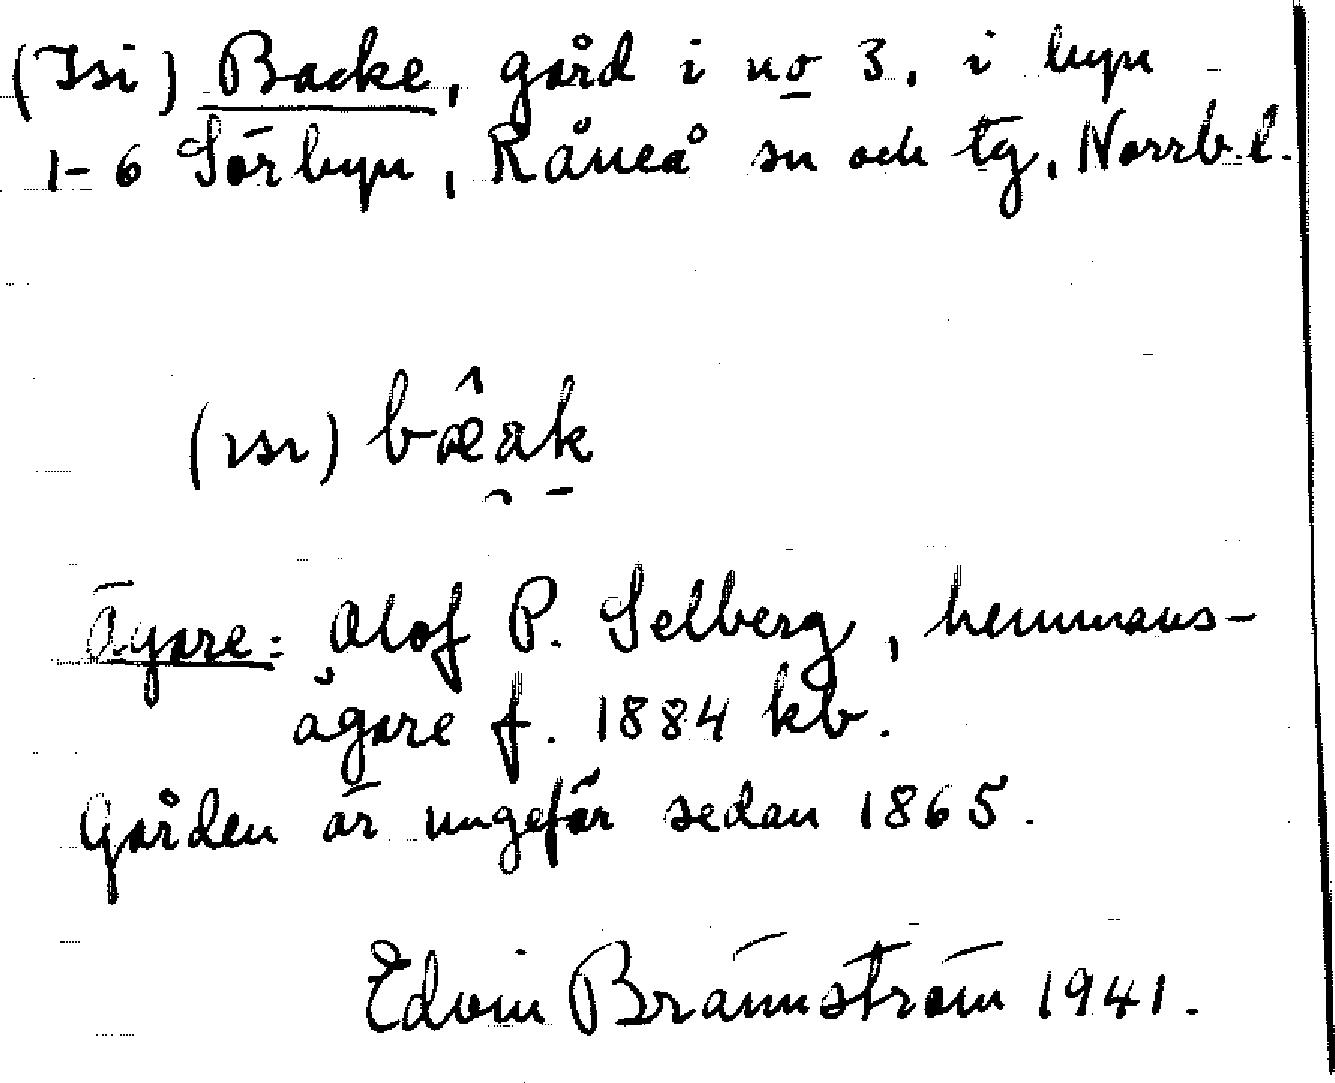 (Isi) Backe, gård i no 3, i byn
1-6 Sörbyn, Råneå sn och tg, Norrb.l.
(ısı) bæ̂ak
Ägare: Olof P. Selberg, hemmans-
ägare f. 1884 kb.
Gården är ungefär sedan 1865.
Edvin Brännström 1941.